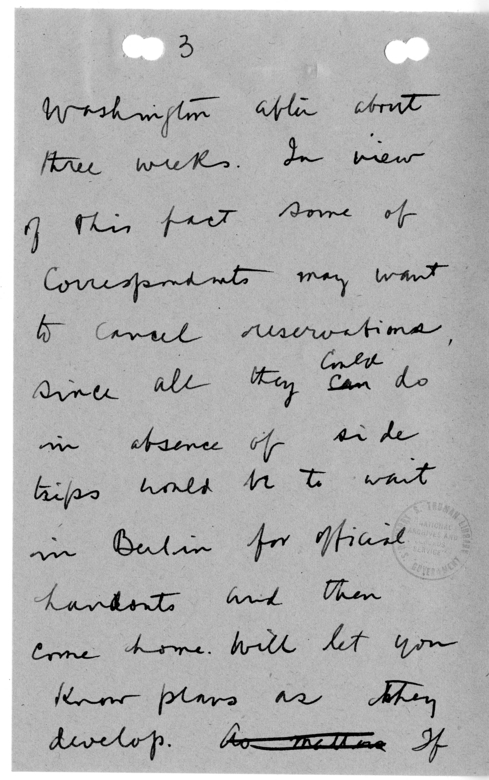 3
Washington after about
three weeks. In view
of this fact some of
Correspondents may want
to cancel reservations,
since all they can could do
in absence of side
trips would be to wait
in Berlin for official
handouts and then
come home. Will let you
know plans as they
develop. As matters If
TRUMAN LIBRARY